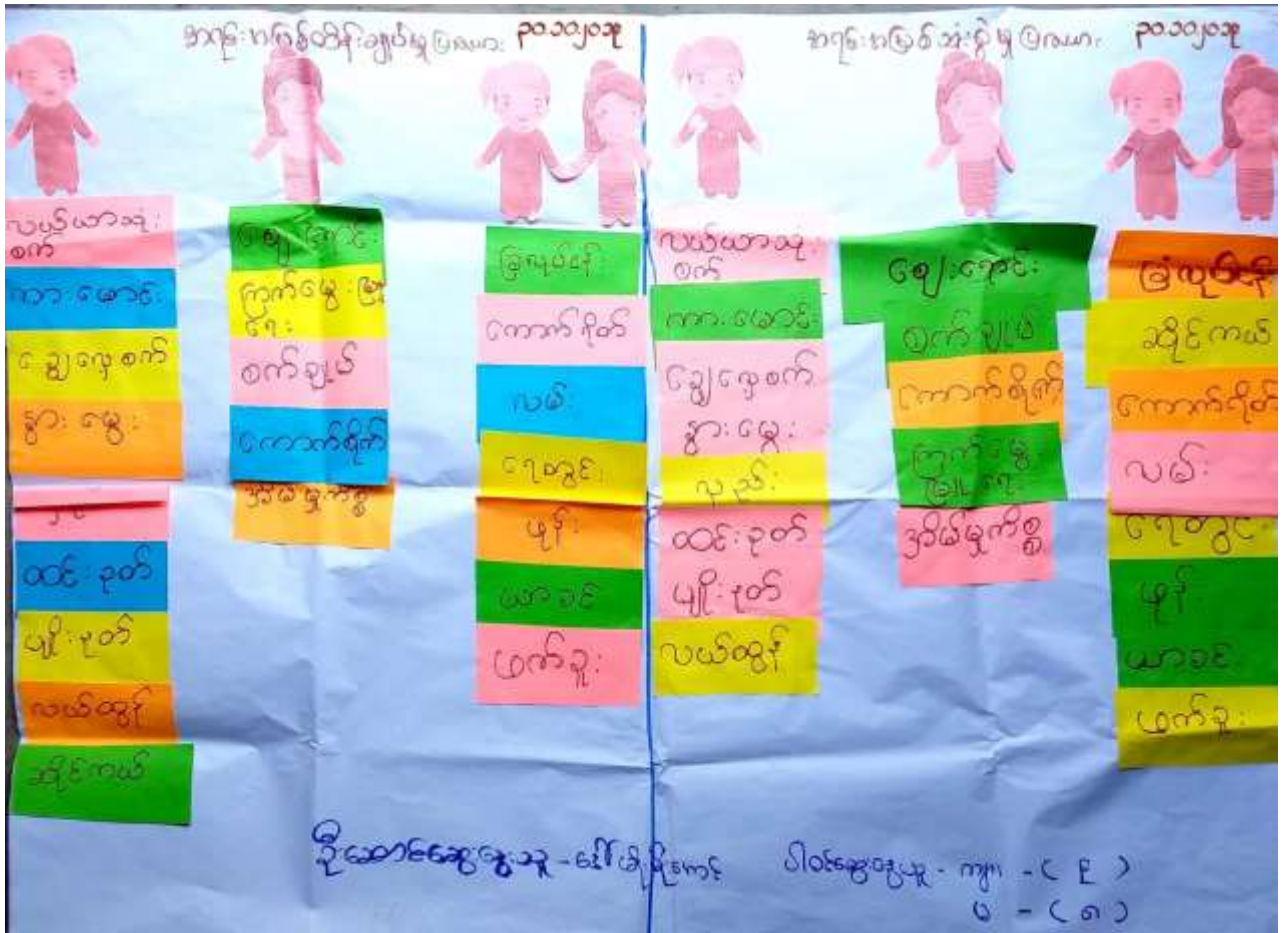 အရင်းအမြစ်ထိန်းချုပ်မှု ပြဇယား
၃၀.၁၀.၂၀၁၃
လယ်ယာသုံး
စက်
ကားမောင်း
ချွေလှေစက်
နွားမွေး
ထင်းခုတ်
မျိုးခုတ်
လယ်ထွန်
ဆိုင်ကယ်
ဈေးရောင်း
ကြက်မွေးမြူ
ရေး
စက်ချုပ်
ကောက်စိုက်
အိမ်မှုကိစ္စ
ခြံလုပ်ငန်း
ကောက်ရိတ်
လမ်း
ရေတွင်း
ဖုန်း
ယာခင်း
ဖက်ခူး
အရင်းအမြစ်သုံးစွဲမှု ပြဇယား
၃၀.၁၀.၂၀၁၃
လယ်ယာသုံး
စက်
ကားမောင်း
ချွေလှေစက်
နွားမွေး
လှည်း
ထင်းခုတ်
မျိုးခုတ်
လယ်ထွန်
ဈေးရောင်း
စက်ချုပ်
ကောက်စိုက်
ကြက်မွေး
မြူရေး
အိမ်မှုကိစ္စ
ခြံလုပ်ငန်း
ဆိုင်ကယ်
ကောက်ရိတ်
လမ်း
ရေတွင်း
ဖုန်း
ယာခင်း
ဖက်ခူး
ဦးဆောင်ဆွေးနွေးသူ - ဒေါ်
ပါဝင်ဆွေးနွေးသူ - ကျား - ( ၉ )
မ - ( ၈ )